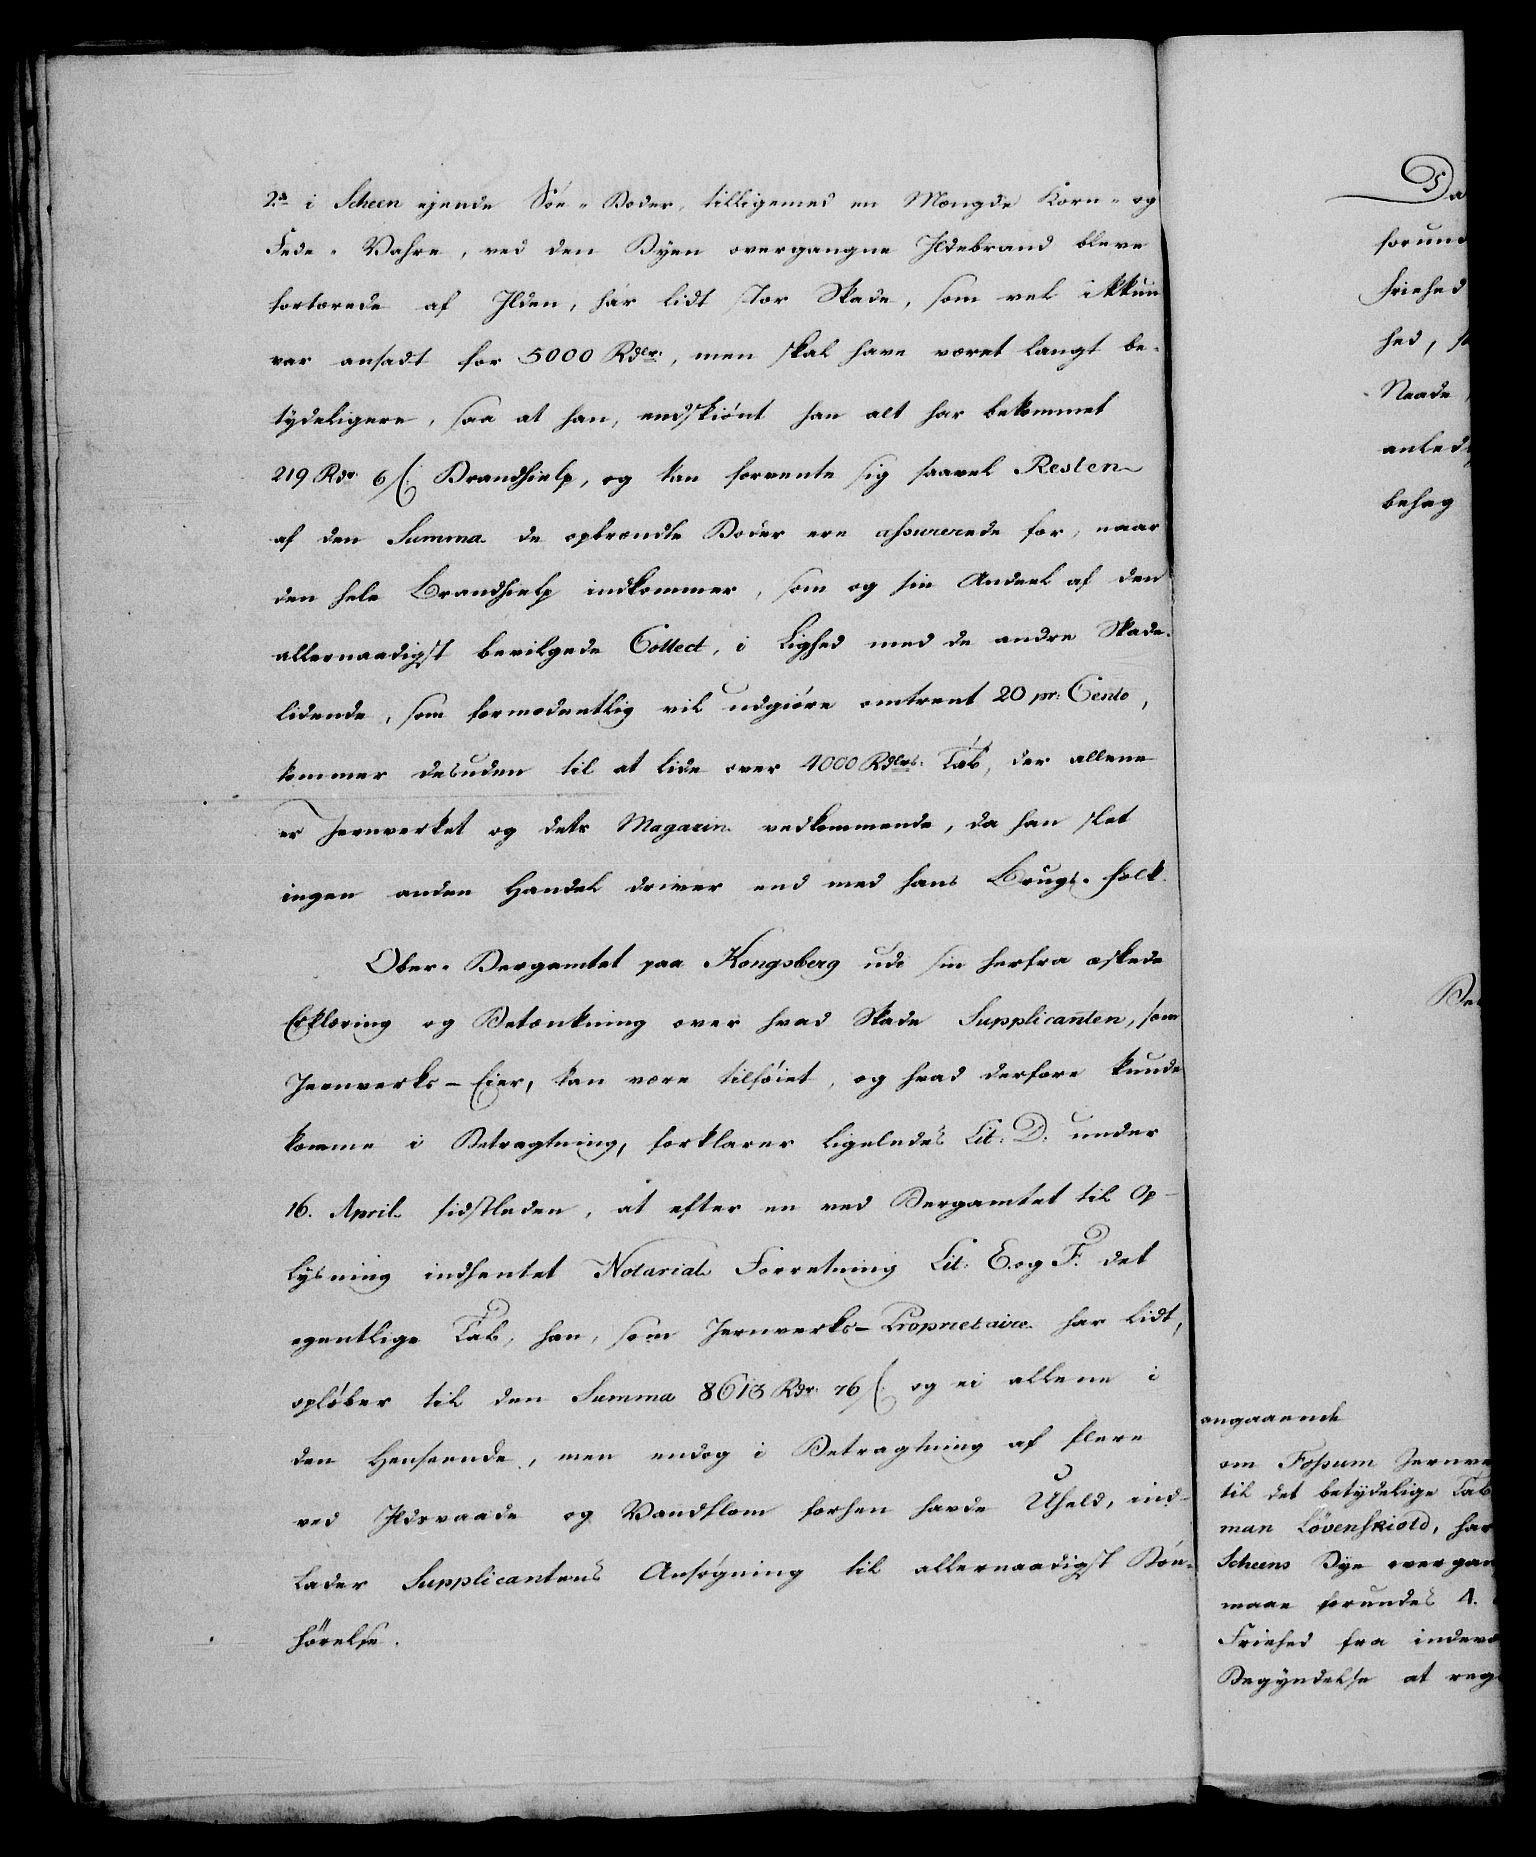 2de i Scheen ejende Söe-Boder, tilligemed en Mængde Korn- og
Fede-Vahre, ved den Byen overgangne Ildebrand bleve
fortærede af Ilden, har lidt stor Skade, som vel ikkun
var ansadt for 5000 Rdlr., men skal have været langt be-
tydeligere, saa at han, endskiönt han alt har bekommet
219 Rdr 6 ſ. Brandhielp, og kan forvente sig saavel Resten
af den Summa de opbrændte Boder ere assurerede for, naar
den hele Brandhielp indkommer, som og sin Andeel af den
allernaadigst bevilgede Collect, i Lighed med de andre Skade-
lidende, som formodentlig vil udgiöre omtrent 20 pr: Cento,
kommer desuden til at lide over 4000 Rdlrs. Tab, der allene
er Jernverket og dets Magazin vedkommende, da han slet
ingen anden Handel driver end med hans Brugs-folk.
Ober-Bergamtet paa Kongsberg udi sin herfra æskede
Erklæring og Betænkning over hvad Skade Supplicanten, som
Jernverks-Eier, kan være tilföiet, og hvad derfore kunde
komme i Betragtning, forklarer ligeledes Lit: D: under
16. April sidstleden, at efter en ved Bergamtet til Op-
lysning indhentet Notarial Forretning Lit: E. og F. det
egentlige Tab, han, som Jernverks-Proprietaire har lidt,
oplöber til den Summa 8613 Rdr. 76 ſ. og ei allene i
den Henseende, men endog i Betragtning af flere
ved Ildsvaade og Vandflom forhen havde Uheld, ind-
lader Supplicantens Ansögning til allernaadigst Bön-
hörelse.
Da
forund
Friehed
hed,
Naade
anled
behag
angaaende
om Fossum Jernve
til det betydelige Tab
man Lövenskiold, har
Scheens Bye overgan
maae forundes 4.
Friehed fra indev
Begyndelse at reg